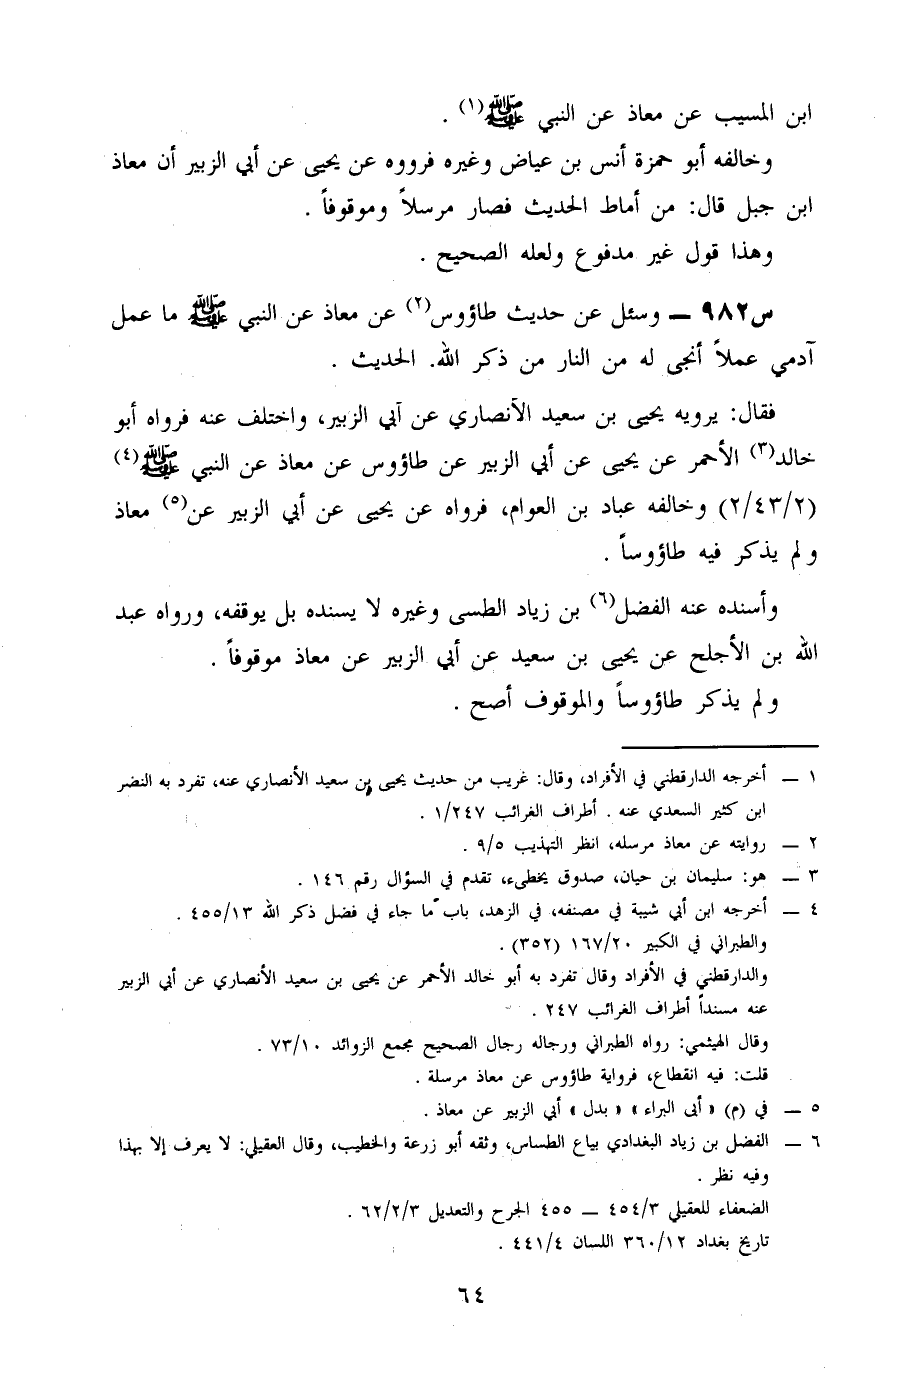 ابن المسيب عن معاذ عن النبي ﷺ(١) .
وخالفه أبو حمزة أنس بن عياض وغيره فرووه عن يحيى عن أبي الزبير أن معاذ
ابن جبل قال: من أماط الحديث فصار مرسلاً وموقوفاً .
وهذا قول غير مدفوع ولعله الصحيح .
س٩٨٢ ـ وسئل عن حديث طاؤوس(٢) عن معاذ عن النبي ﷺ ما عمل
آدمي عملاً أنجى له من النار من ذكر الله. الحديث .
فقال: يرويه يحيى بن سعيد الأنصاري عن أبي الزبير، واختلف عنه فرواه أبو
خالد(٣) الأحمر عن يحيى عن أبي الزبير عن طاؤوس عن معاذ عن النبي ﷺ(٤)
(٢/٤٣/٢) وخالفه عباد بن العوام، فرواه عن يحيى عن أبي الزبير عن(٥) معاذ
ولم يذكر فيه طاؤوساً .
وأسنده عنه الفضل(٦) بن زياد الطسى وغيره لا يسنده بل يوقفه، ورواه عبد
الله بن الأجلح عن يحيى بن سعيد عن أبي الزبير عن معاذ موقوفاً .
ولم يذكر طاؤوساً والموقوف أصح .
١ ـ أخرجه الدارقطني في الأفراد، وقال: غريب من حديث يحيى بن سعيد الأنصاري عنه، تفرد به النضر
ابن كثير السعدي عنه . أطراف الغرائب ١/٢٤٧ .
٢ ـ روايته عن معاذ مرسله، انظر التهذيب ٩/٥ .
٣ ـ هو: سليمان بن حيان، صدوق يخطيء، تقدم في السؤال رقم ١٤٦ .
٤ ـ أخرجه ابن أبي شيبة في مصنفه، في الزهد، باب ما جاء في فضل ذكر الله ٤٥٥/١٣ .
والطبراني في الكبير ١٦٧/٢٠ (٣٥٢) .
والدارقطني في الأفراد وقال تفرد به أبو خالد الأحمر عن يحيى بن سعيد الأنصاري عن أبي الزبير
عنه مسنداً أطراف الغرائب ٢٤٧ .
وقال الهيثمي: رواه الطبراني ورجاله رجال الصحيح مجمع الزوائد ٧٣/١٠ .
قلت: فيه انقطاع، فرواية طاؤوس عن معاذ مرسلة .
٥ ـ في (م) «أبى البراء» «بدل» أبي الزبير عن معاذ .
٦ ـ الفضل بن زياد البغدادي بياع الطساس، وثقه أبو زرعة والخطيب، وقال العقيلي: لا يعرف إلا بهذا
وفيه نظر .
الضعفاء للعقيلي ٤٥٤/٣ ـ ٤٥٥ الجرح والتعديل ٦٢/٢/٣ .
تاريخ بغداد ٣٦٠/١٢ اللسان ٤٤١/٤ .
٦٤